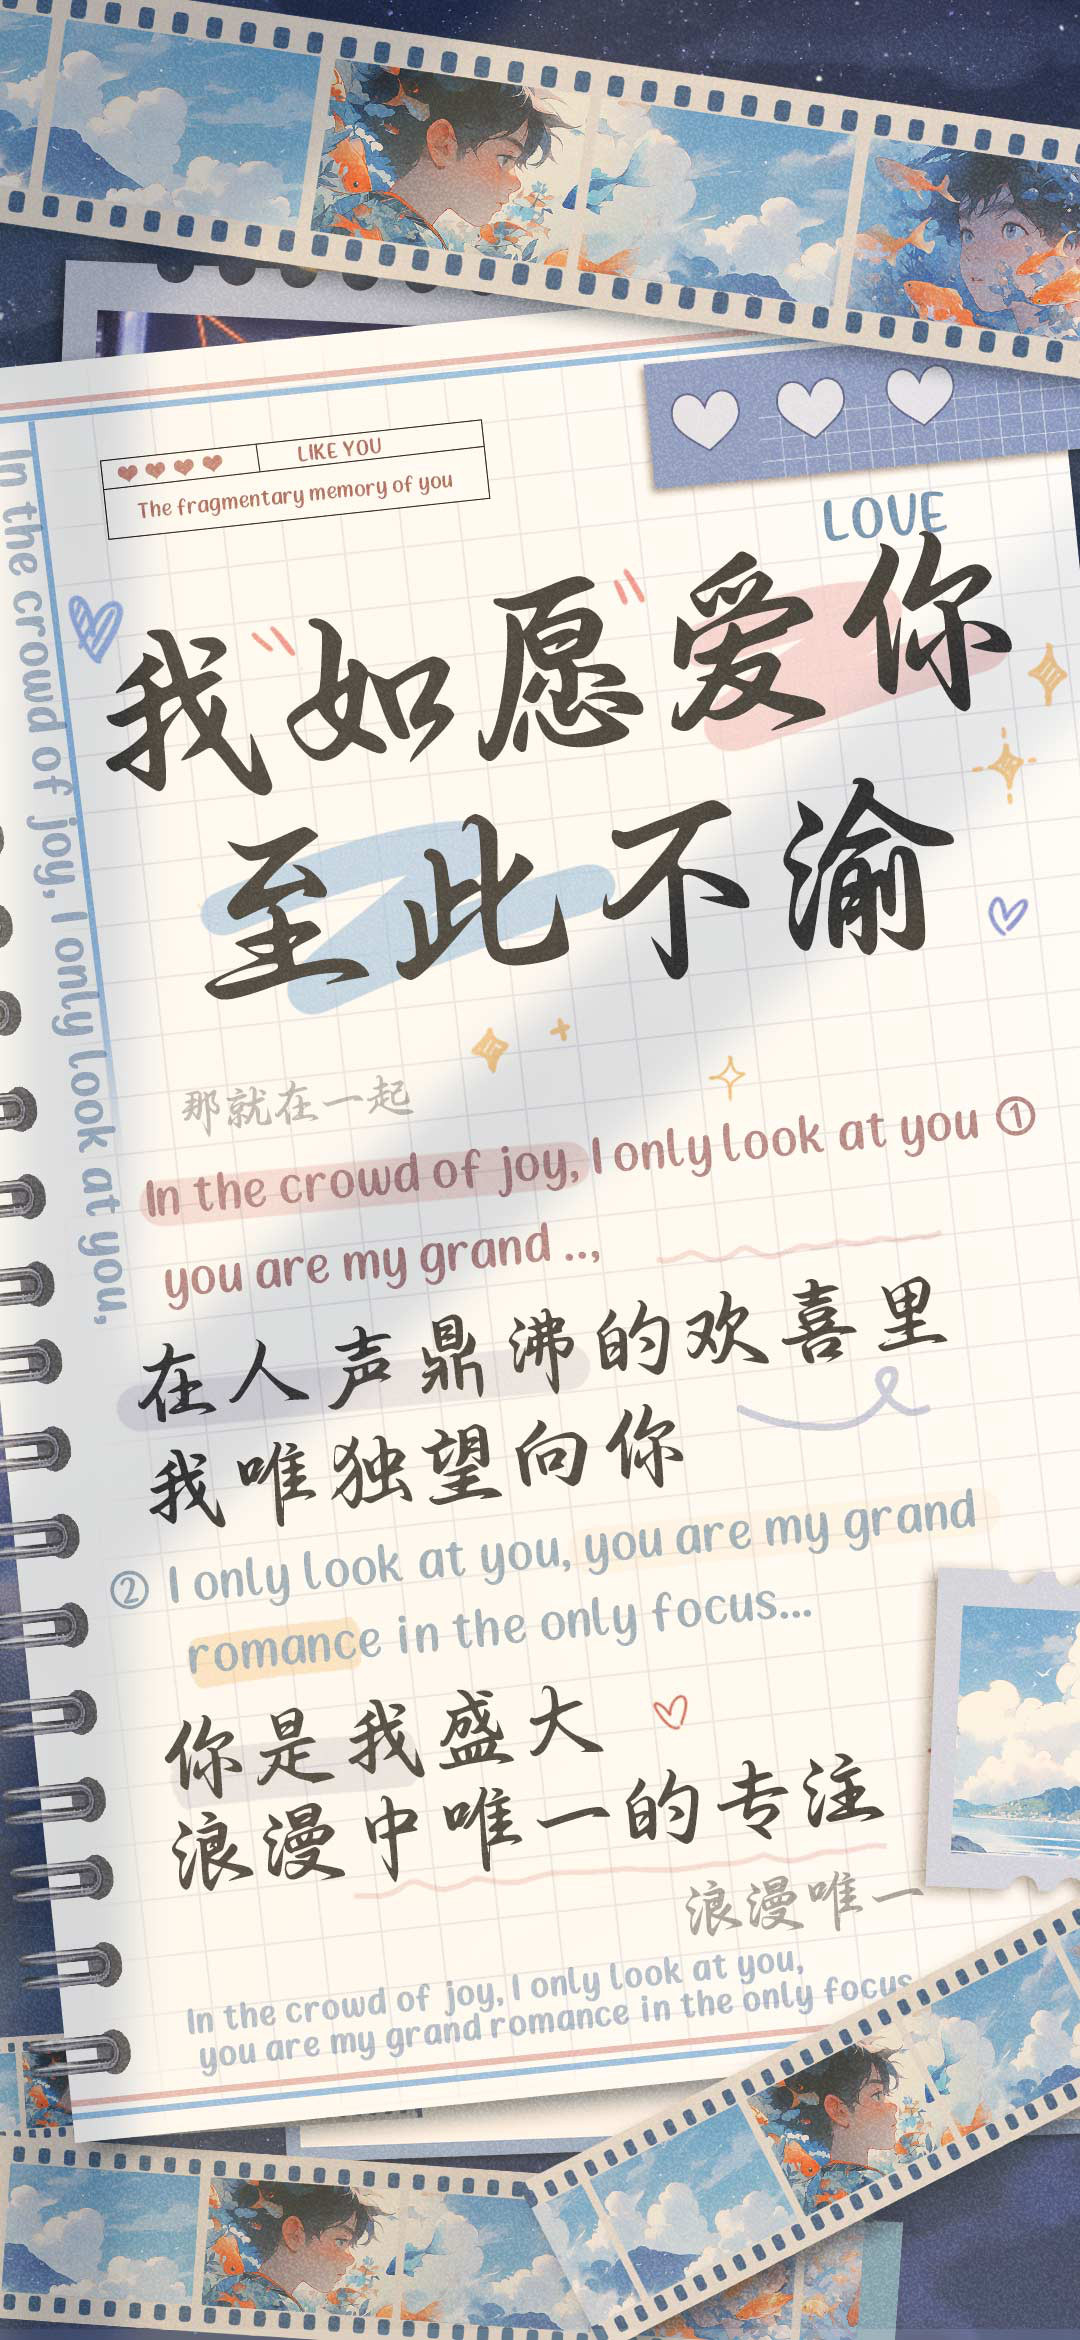 LIKE YOU
The fragmentary memory of you
LOVE
我如愿爱你
至此不渝
In the crowd of joy, I only look at you,
那就在一起
In the crowd of joy, I only look at you ①
you are my grand ..,
在人声鼎沸的欢喜里
我唯独望向你
② I only look at you, you are my grand
romance in the only focus...
你是我盛大
浪漫中唯一的专注
浪漫唯一
In the crowd of joy, I only look at you,
you are my grand romance in the only focus